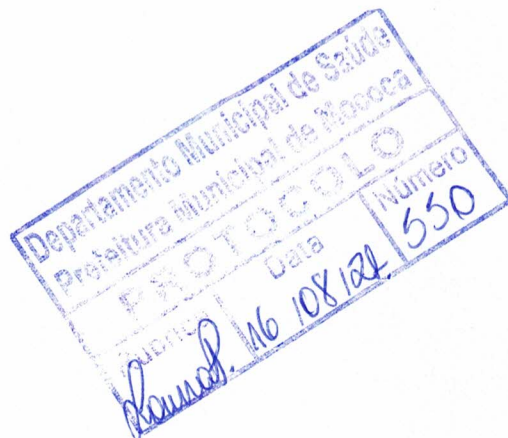 Departamento Municipal de Saúde
Prefeitura Municipal de Mococa
PROTOCOLO
Rubrica Data Número
16 108 550